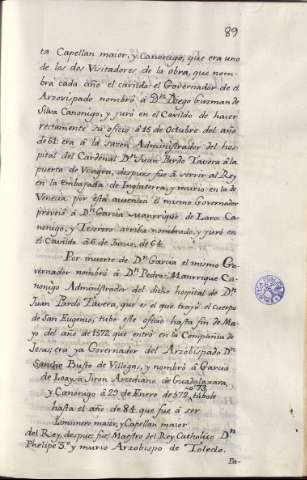 89
ta Capellan maior, y Canonigo, que era uno
de los dos Visitadores de la obra, que nom-
bra cada año el cavildo: el Governador de el
Arzovispado nombró â Dⁿ Diego Guzman de
Silva Canonigo, y juró en el Cavildo de hacer
rectamente su oficio â 15 de Octubre del año
de 61 era â la sazon Administrador del hos-
pital del Cardenal Dⁿ Juan Pardo Tavera â la
puerta de Visagra, despues fue â servir al Rey
en la embaxada de Inglaterra, y murio en la de
Venecia por esta ausencia el mismo Governador
proveió â Dⁿ Garcia Manrrique de Lara Ca-
nonigo, y Tesorero arriba nombrado, y juró en
el Cavildo â 6 de Junio, de 64.
Por muerte de Dⁿ Garcia el mismo Go-
vernador nombró â Dⁿ Pedro Manrrique Ca-
nonigo Administrador del dicho hospital de Dⁿ
Juan Pardo Tavera, que es el que trajó el cuerpo
de San Eugenio, tubo este oficio hasta fin de Ma-
yo del año de 1572 que entró en la Compañia de
Jesus; era ya Governador del Arzobispado Dⁿ
Sancho Busto de Villegas, y nombró â Garcia
de Loaysa Jiron Arzediano de Guadalaxara,
y Canonigo â 29 de Enero de 1573, tubole
hasta el año de 84 que fue â ser
Limosnero maior, y Capellan maior
del Rey, despues fue Maestro del Rey Catholico Dⁿ
Phelipe 3º y murio Arzobispo de Toledo.
Pa-